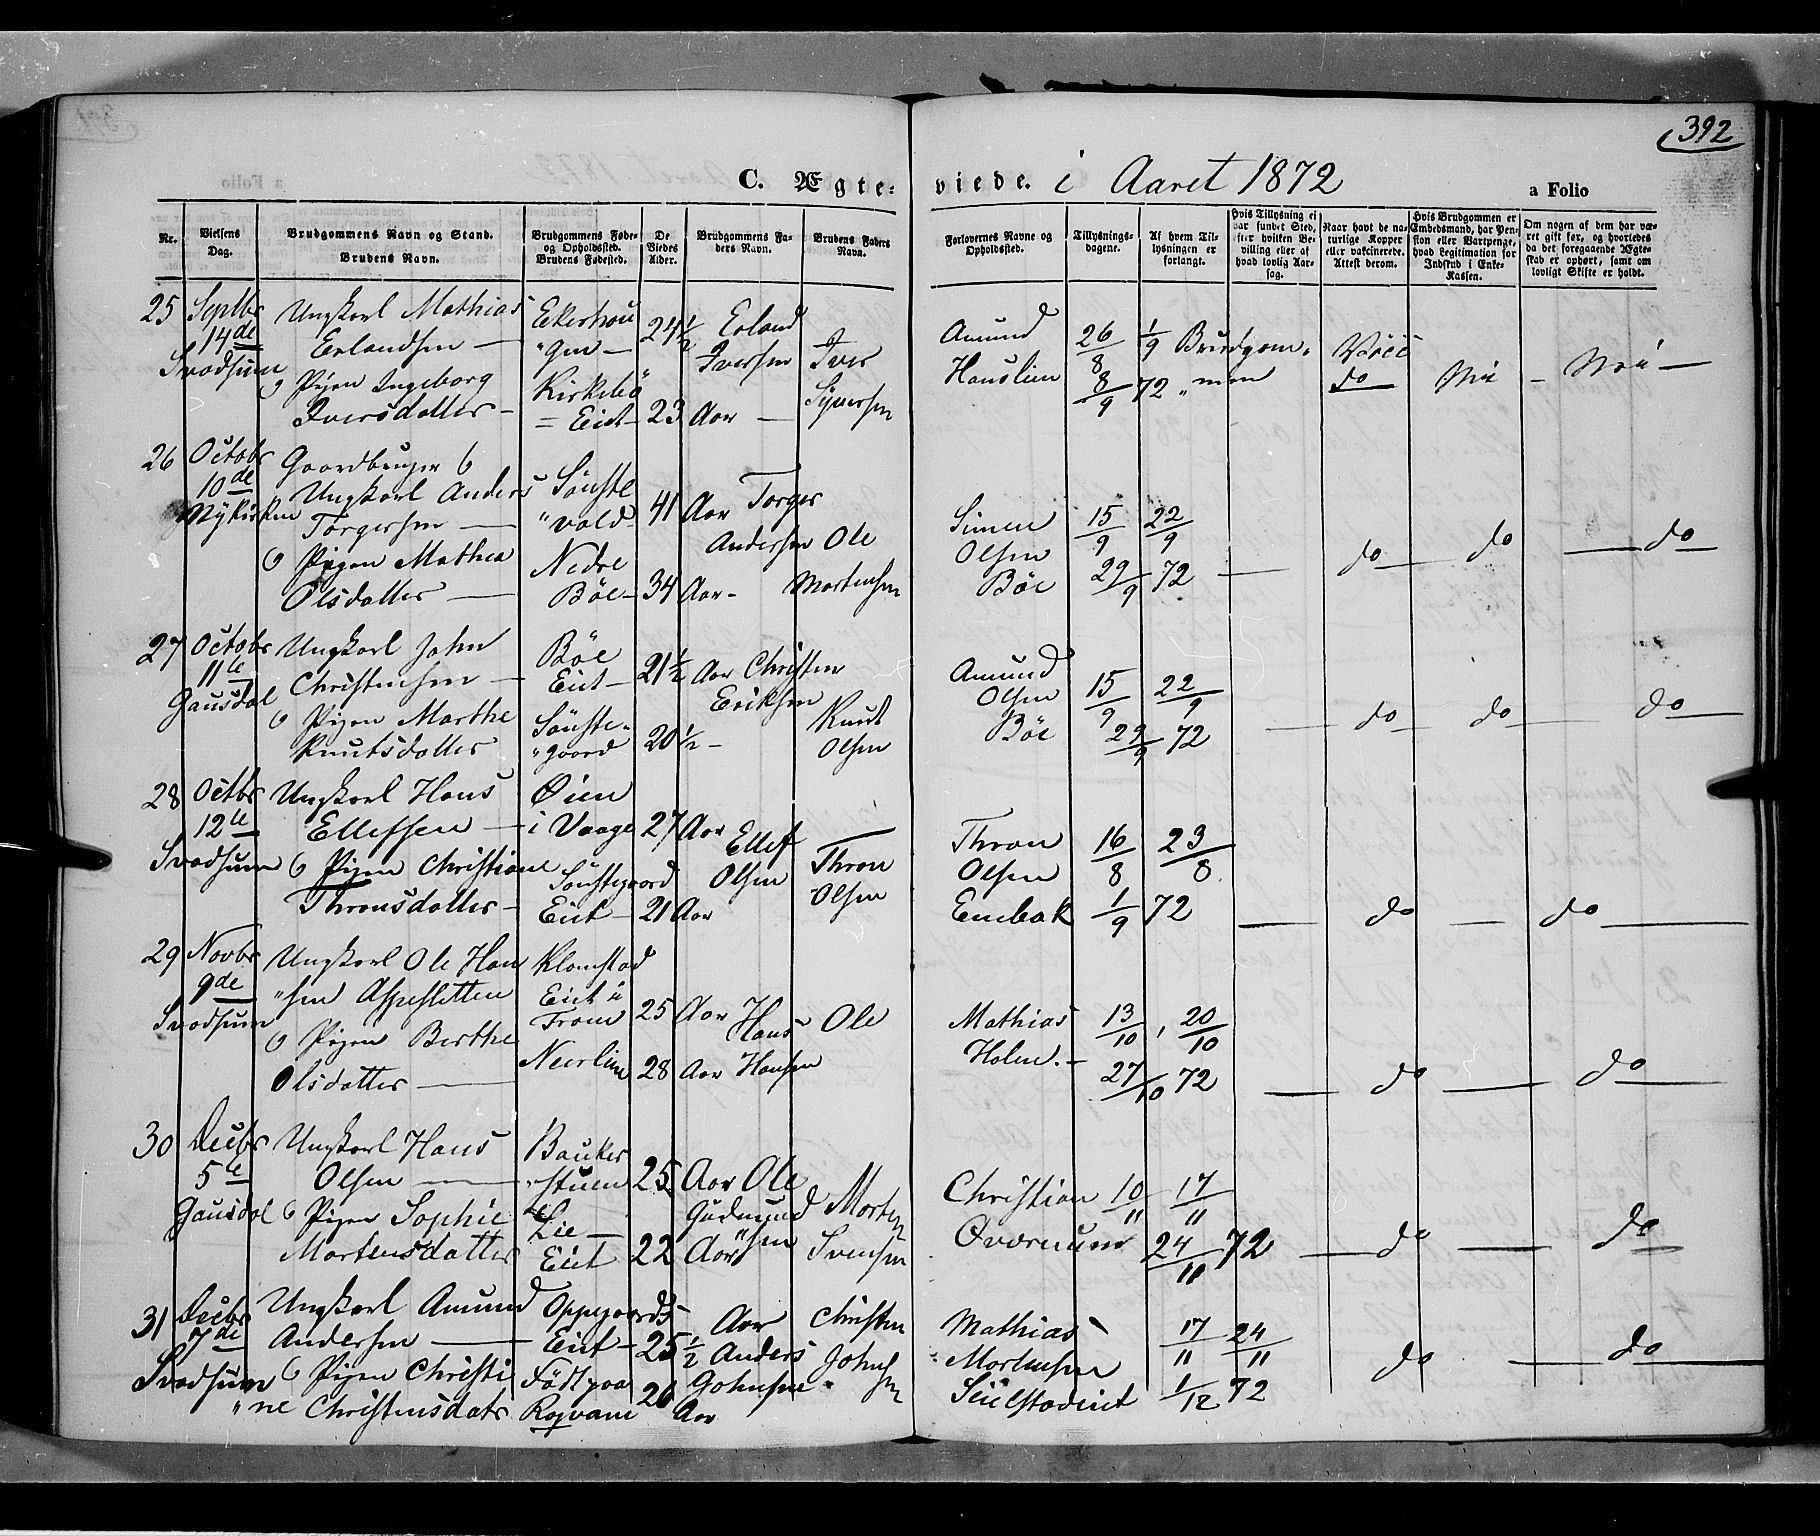 392
C. Ægte- viede. i Aaret 1872 a Folio
Nr.
Vielsens Dag.
Brudgommens Navn og Stand.
Brudens Navn.
Brudgommens Føde- og Opholdssted.
Brudens Fødested.
De Viedes Alder.
Brudgommens Faders Navn.
Brudens Faders Navn.
Forlovernes Navne og Opholdssted.
Tillysningsdagene.
Af hvem Tillysningen er forlangt.
Hvis Tillysning ei har fundet Sted, efter hvilken Bevilling eller af hvad lovlig Aarsag.
Naar havt de naturlige Kopper eller vakcinerede. Attest derom.
Hvis Brudgommen er Embedsmand, har Pension eller Vartpenge, hvad Legitimation for Indskud i Enkekassen.
Om nogen af dem har været gift før, og hvorledes da det foregaaende Ægteskab er ophørt, samt om lovligt Skifte er holdt.
25 Septbr 14de Svadsum
Ungkarl Mathias Erlandsen —
Ekerhou „gen —
24½ Erland Iversen
& Pigen Ingeborg Iversdatter —
Kirkebö = Eiet — 23 Aar — Iver Syversen
Amund Hauslien 26/8 1/9 8/9 72 Brudgom„ „men
do
26 Octobr 10de Nykirken
Gaardbruger &
Ungkarl Anders Torgersen —
Sönste „vold 41 Aar Torger Andersen
& Pigen Mathea Olsdatter —
Nedre Böe — 34 Aar — Ole Mortensen
Simen Olsen Böe 15/9 22/9 29/9 72 — do — do — do
27 Octobr 11te Gausdal
Ungkarl John Christensen —
Böe Eiet — 21½ Aar Christen Eriksen
& Pigen Marthe Knutsdatter
Sönste„ „gaard 20½ — Knut Olsen
Amund Olsen Böe 15/9 22/9 29/9 72 — do — do — do
28 Octbr 12te Svadsum
Ungkarl Hans Ellefsen —
Øien i Vaage 27 Aar Ellef Olsen
& Pigen Christiane Thronsdatter —
Sönstegaard Eiet — 21 Aar Thron Olsen
Thron Olsen Enebak 16/8 23/8 1/9 72 — do — do —
29 Novbr 9de Svadsum
Ungkarl Ole Han „sen
Klomstad Eiet i From 25 Aar Hans Hansen
& Pigen Berthe Olsdatter —
28 Aar Ole
Mathias Holen. — 13/10, 20/10 27/10 72 — do — do —
30 Decbr 5te Gausdal
Ungkarl Hans Olsen —
Bauker „stuen 25 Aar Ole Gudmund „sen
& Pigen Sophie Mortensdatter
Lie — Eiet 22 Aar Morten Svensen
Christian Øverneum 10/11 17/11 24/11 72 — do — do
31 Decbr 7de Svadsum
Ungkarl Amund Andersen —
Oppegaards Eiet — 25½ Aar Anders Johnsen
& Pigen Christi „ne Christensdatr
Födt paa 26 Aar Christen Johnsen
Mathias Mortensen 17/11 24/11 1/12 72 do — do